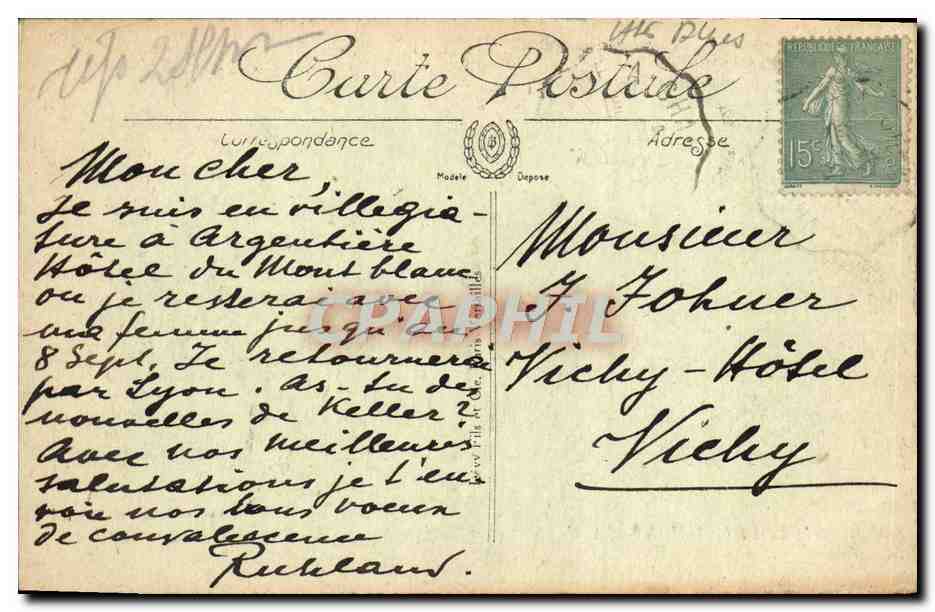 Hte Alpes
Carte Postale
REPUBLIQUE FRANÇAISE
15c
Correspondance
Adresse
Modele Depose
Mon cher,
Je suis en villégia-
ture à Argentière
Hôtel du Mont blanc
ou je resterai avec
ma femme jusqu'au
8 Sept. Je retournerai
par Lyon. As-tu des
nouvelles de Keller?
Avec nos meilleures
salutations je t'en-
voie nos bons voeux
de convalescence
Ruhland.
Monsieur
J. Johner
Vichy-Hôtel
Vichy
Fils et Cie, Paris
CPAPHIL